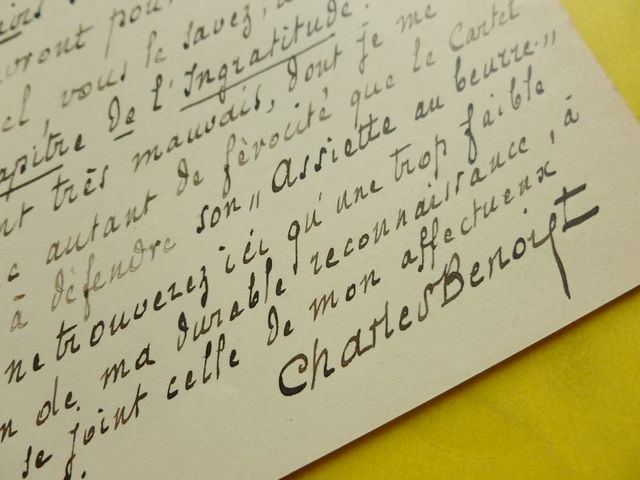 vront pour
el, vous le savez,
apitre de l'Ingratitude.
nt très mauvais, dont je me
c autant de férocité que le Cartel
à défendre son "Assiette au beurre."
ne trouverez ici qu'une trop faible
n de ma durable reconnaissance, à
se joint celle de mon affectueux
Charles Benoist